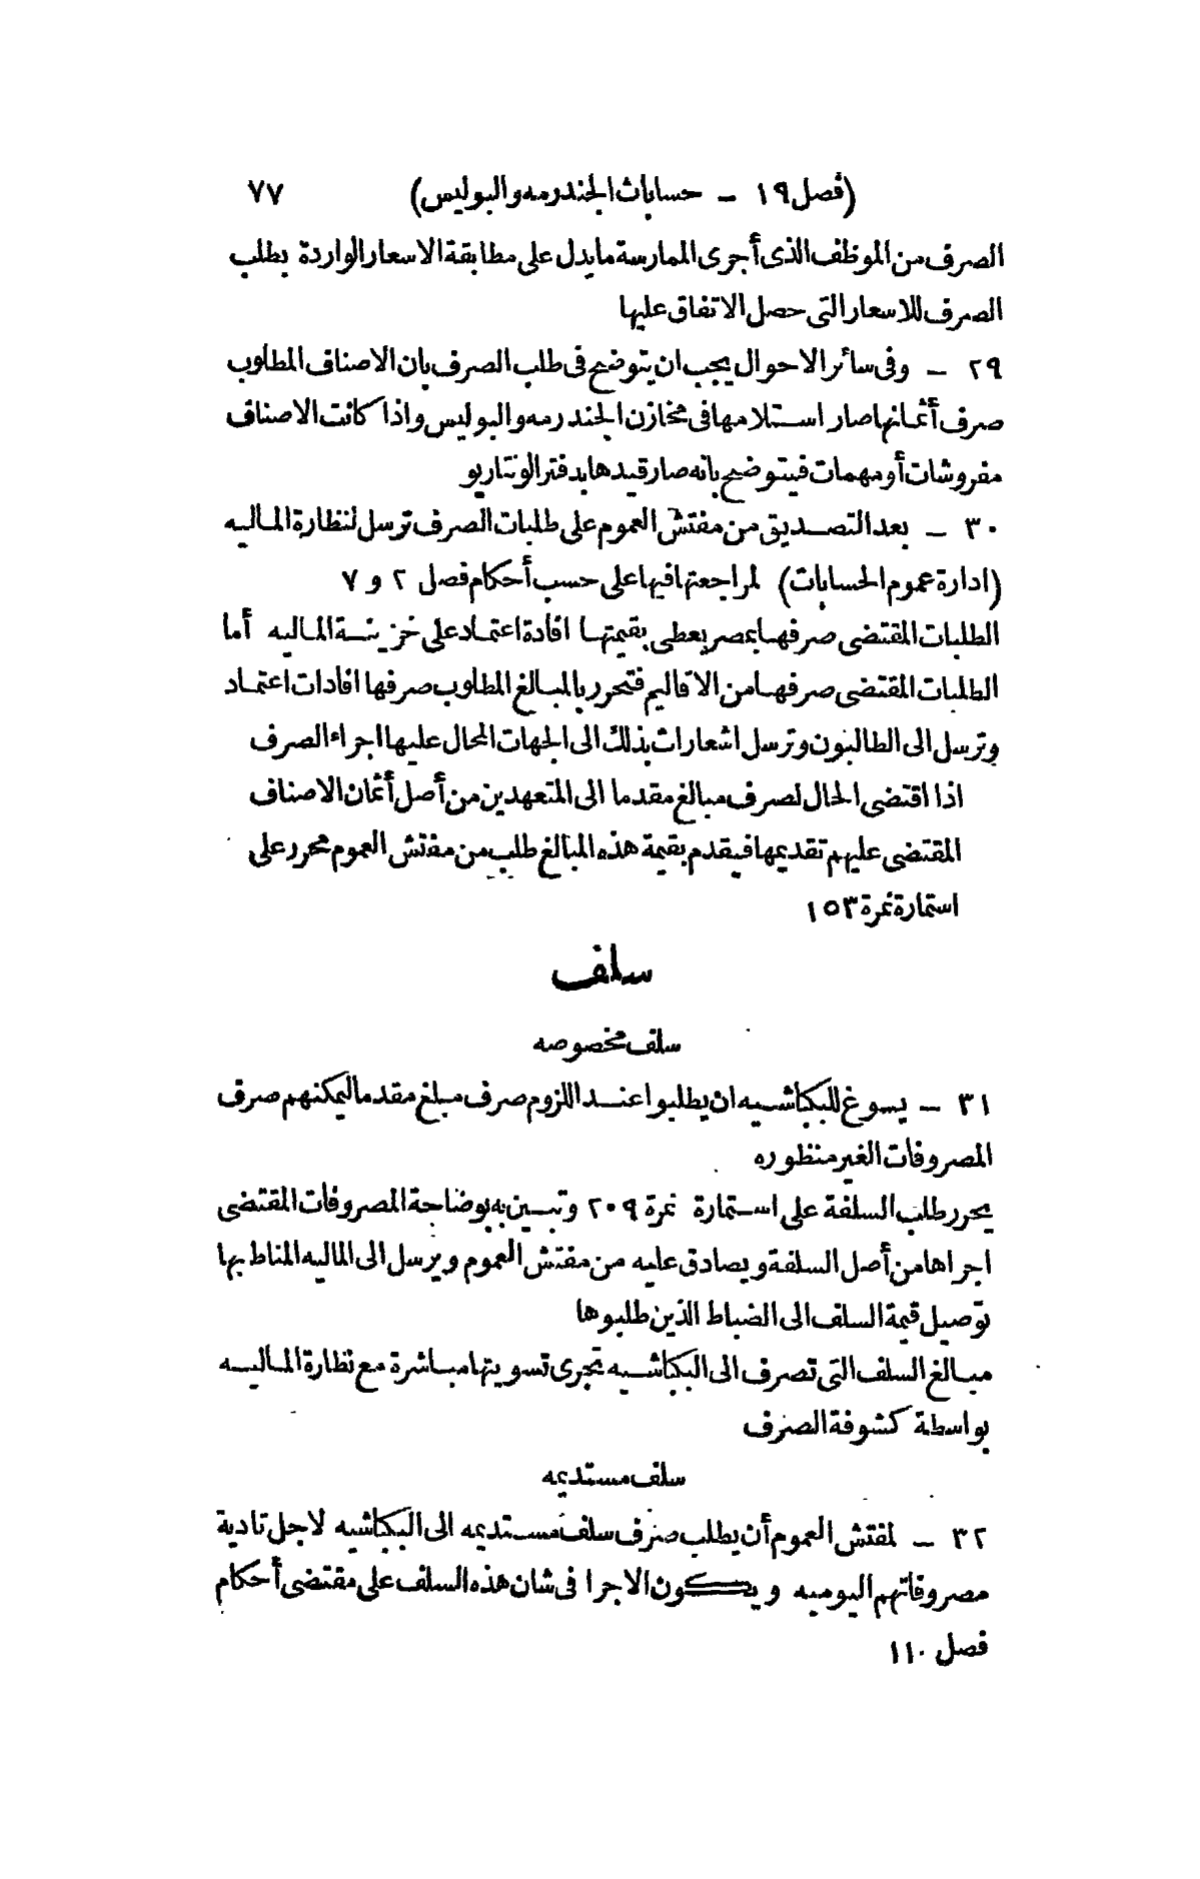 (فصل ١٩ – حسابات الجندرمه والبوليس) ٧٧
الصرف من الموظف الذى أجرى الممارسة مايدل على مطابقة الاسعار الواردة بطلب
الصرف للاسعار التى حصل الاتفاق عليها
٢٩ – وفى سائر الاحوال يجب ان يتوضح فى طلب الصرف بان الاصناف المطلوب
صرف أثمانها صار استلامها فى مخازن الجندرمه والبوليس واذا كانت الاصناف
مفروشات أو مهمات فيتوضح بانه صار قيدها بدفتر الونتاريو
٣٠ – بعد التصديق من مفتش العموم على طلبات الصرف ترسل لنظارة الماليه
(ادارة عموم الحسابات) لمراجعتها فيها على حسب أحكام فصل ٢ و ٧
الطلبات المقتضى صرفها بمصر يعطى بقيمتها افادة اعتماد على خزينة الماليه أما
الطلبات المقتضى صرفها من الاقاليم فتحرر بالمبالغ المطلوب صرفها افادات اعتماد
وترسل الى الطالبون وترسل اشعارات بذلك الى الجهات المحال عليها اجراء الصرف
اذا اقتضى الحال لصرف مبالغ مقدما الى المتعهدين من أصل أثمان الاصناف
المقتضى عليهم تقديمها فيقدم بقيمة هذه المبالغ طلب من مفتش العموم محرر على
استمارة نمرة ١٥٣
سلف
سلف مخصوصه
٣١ – يسوغ للبكباشيه ان يطلبوا عند اللزوم صرف مبلغ مقدما ليمكنهم صرف
المصروفات الغير منظوره
يحرر طلب السلفة على استمارة نمرة ٢٠٩ وتبين به بوضاحة المصروفات المقتضى
اجراها من أصل السلفة ويصادق عليه من مفتش العموم ويرسل الى الماليه المناط بها
توصيل قيمة السلف الى الضباط الذين طلبوها
مبالغ السلف التى تصرف الى البكباشيه تجرى تسويتها مباشرة مع نظارة الماليه
بواسطة كشوفة الصرف
سلف مستديمه
٣٢ – لمفتش العموم أن يطلب صرف سلف مستديمه الى البكباشيه لاجل تادية
مصروفاتهم اليوميه ويكون الاجرا فى شان هذه السلف على مقتضى أحكام
فصل ١١٠